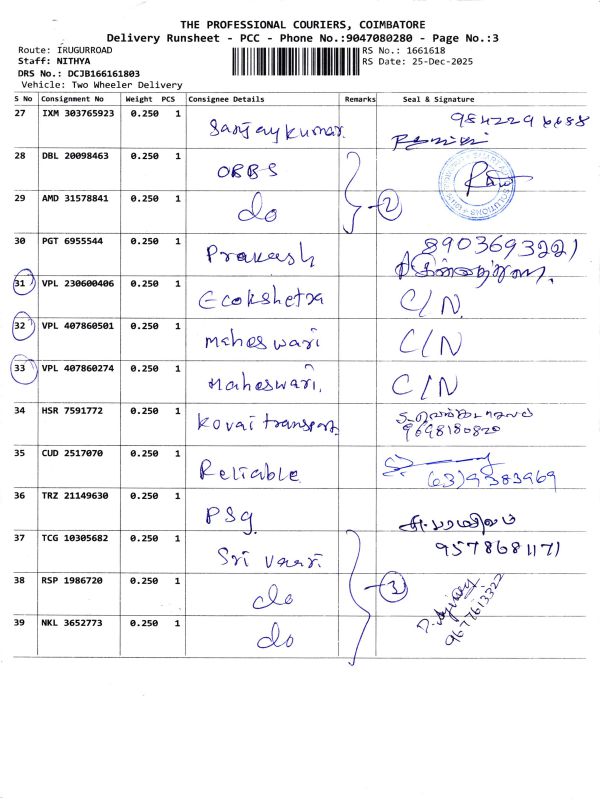 THE PROFESSIONAL COURIERS, COIMBATORE
Delivery Runsheet - PCC - Phone No.:9047080280 - Page No.:3
Route: IRUGURROAD RS No.: 1661618
Staff: NITHYA RS Date: 25-Dec-2025
DRS No.: DCJB166161803
Vehicle: Two Wheeler Delivery
S No Consignment No Weight PCS Consignee Details Remarks Seal & Signature
27 IXM 303765923 0.250 1 Sanjaykumar
28 DBL 20098463 0.250 1 ORBS
29 AMD 31578841 0.250 1 do 2
30 PGT 6955544 0.250 1 Prakash 8903693221
31 VPL 230600406 0.250 1 Ecokshetra C/N
32 VPL 407860501 0.250 1 Maheswari C/N
33 VPL 407860274 0.250 1 Maheswari. C/N
34 HSR 7591772 0.250 1 Kovai transport 9698180820
35 CUD 2517070 0.250 1 Reliable
36 TRZ 21149630 0.250 1 PSG
37 TCG 10305682 0.250 1 Sri Vaari 9578681171
38 RSP 1986720 0.250 1 do 3
39 NKL 3652773 0.250 1 do 9677613322